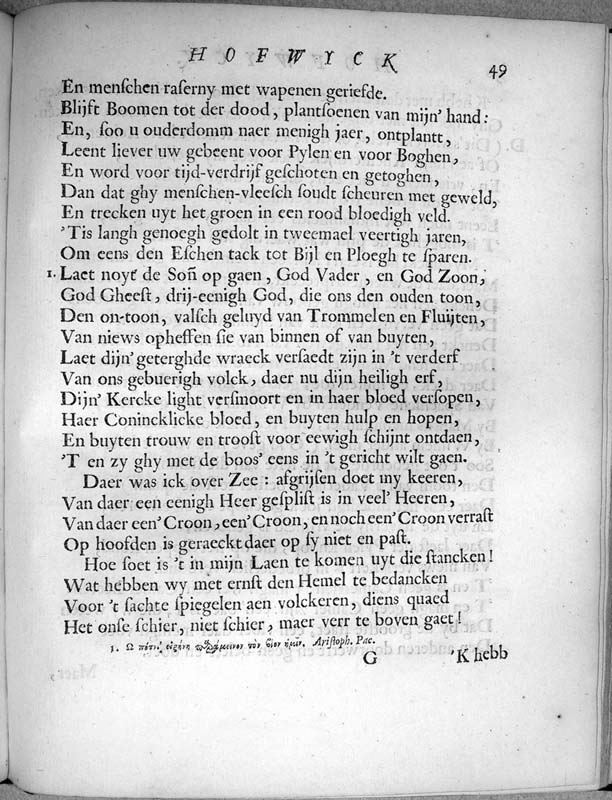 HOFWYCK 49
En menſchen raſerny met wapenen geriefde.
Blijft Boomen tot der dood, plantſoenen van mijn' hand:
En, ſoo u ouderdomm naer menigh jaer, ontplantt,
Leent liever uw gebeent voor Pylen en voor Boghen,
En word voor tijd-verdrijf geſchoten en getoghen,
Dan dat ghy menſchen-vleeſch ſoudt ſcheuren met geweld,
En trecken uyt het groen in een rood bloedigh veld.
'Tis langh genoegh gedolt in tweemael veertigh jaren,
Om eens den Eſchen tack tot Bijl en Ploegh te ſparen.
1. Laet noyt de Soñ op gaen, God Vader, en God Zoon,
God Gheeſt, drij-eenigh God, die ons den ouden toon,
Den on-toon, valſch geluyd van Trommelen en Fluijten,
Van niews opheffen ſie van binnen of van buyten,
Laet dijn' geterghde wraeck verſaedt zijn in 't verderf
Van ons gebuerigh volck, daer nu dijn heiligh erf,
Dijn' Kercke light verſmoort en in haer bloed verſopen,
Haer Conincklicke bloed, en buyten hulp en hopen,
En buyten trouw en trooſt voor eewigh ſchijnt ontdaen,
'T en zy ghy met de boos' eens in 't gericht wilt gaen.
Daer was ick over Zee: afgrijſen doet my keeren,
Van daer een eenigh Heer geſpliſt is in veel' Heeren,
Van daer een' Croon, een' Croon, en noch een' Croon verraſt
Op hoofden is geraeckt daer op ſy niet en paſt.
Hoe ſoet is 't in mijn Laen te komen uyt die ſtancken!
Wat hebben wy met ernſt den Hemel te bedancken
Voor 't ſachte ſpiegelen aen volckeren, diens quaed
Het onſe ſchier, niet ſchier, maer verr te boven gaet!
1. Ω πότνι' εἰρήνη τὸν βίον ἡμῖν. Ariſtoph. Pac.
G 'K hebb